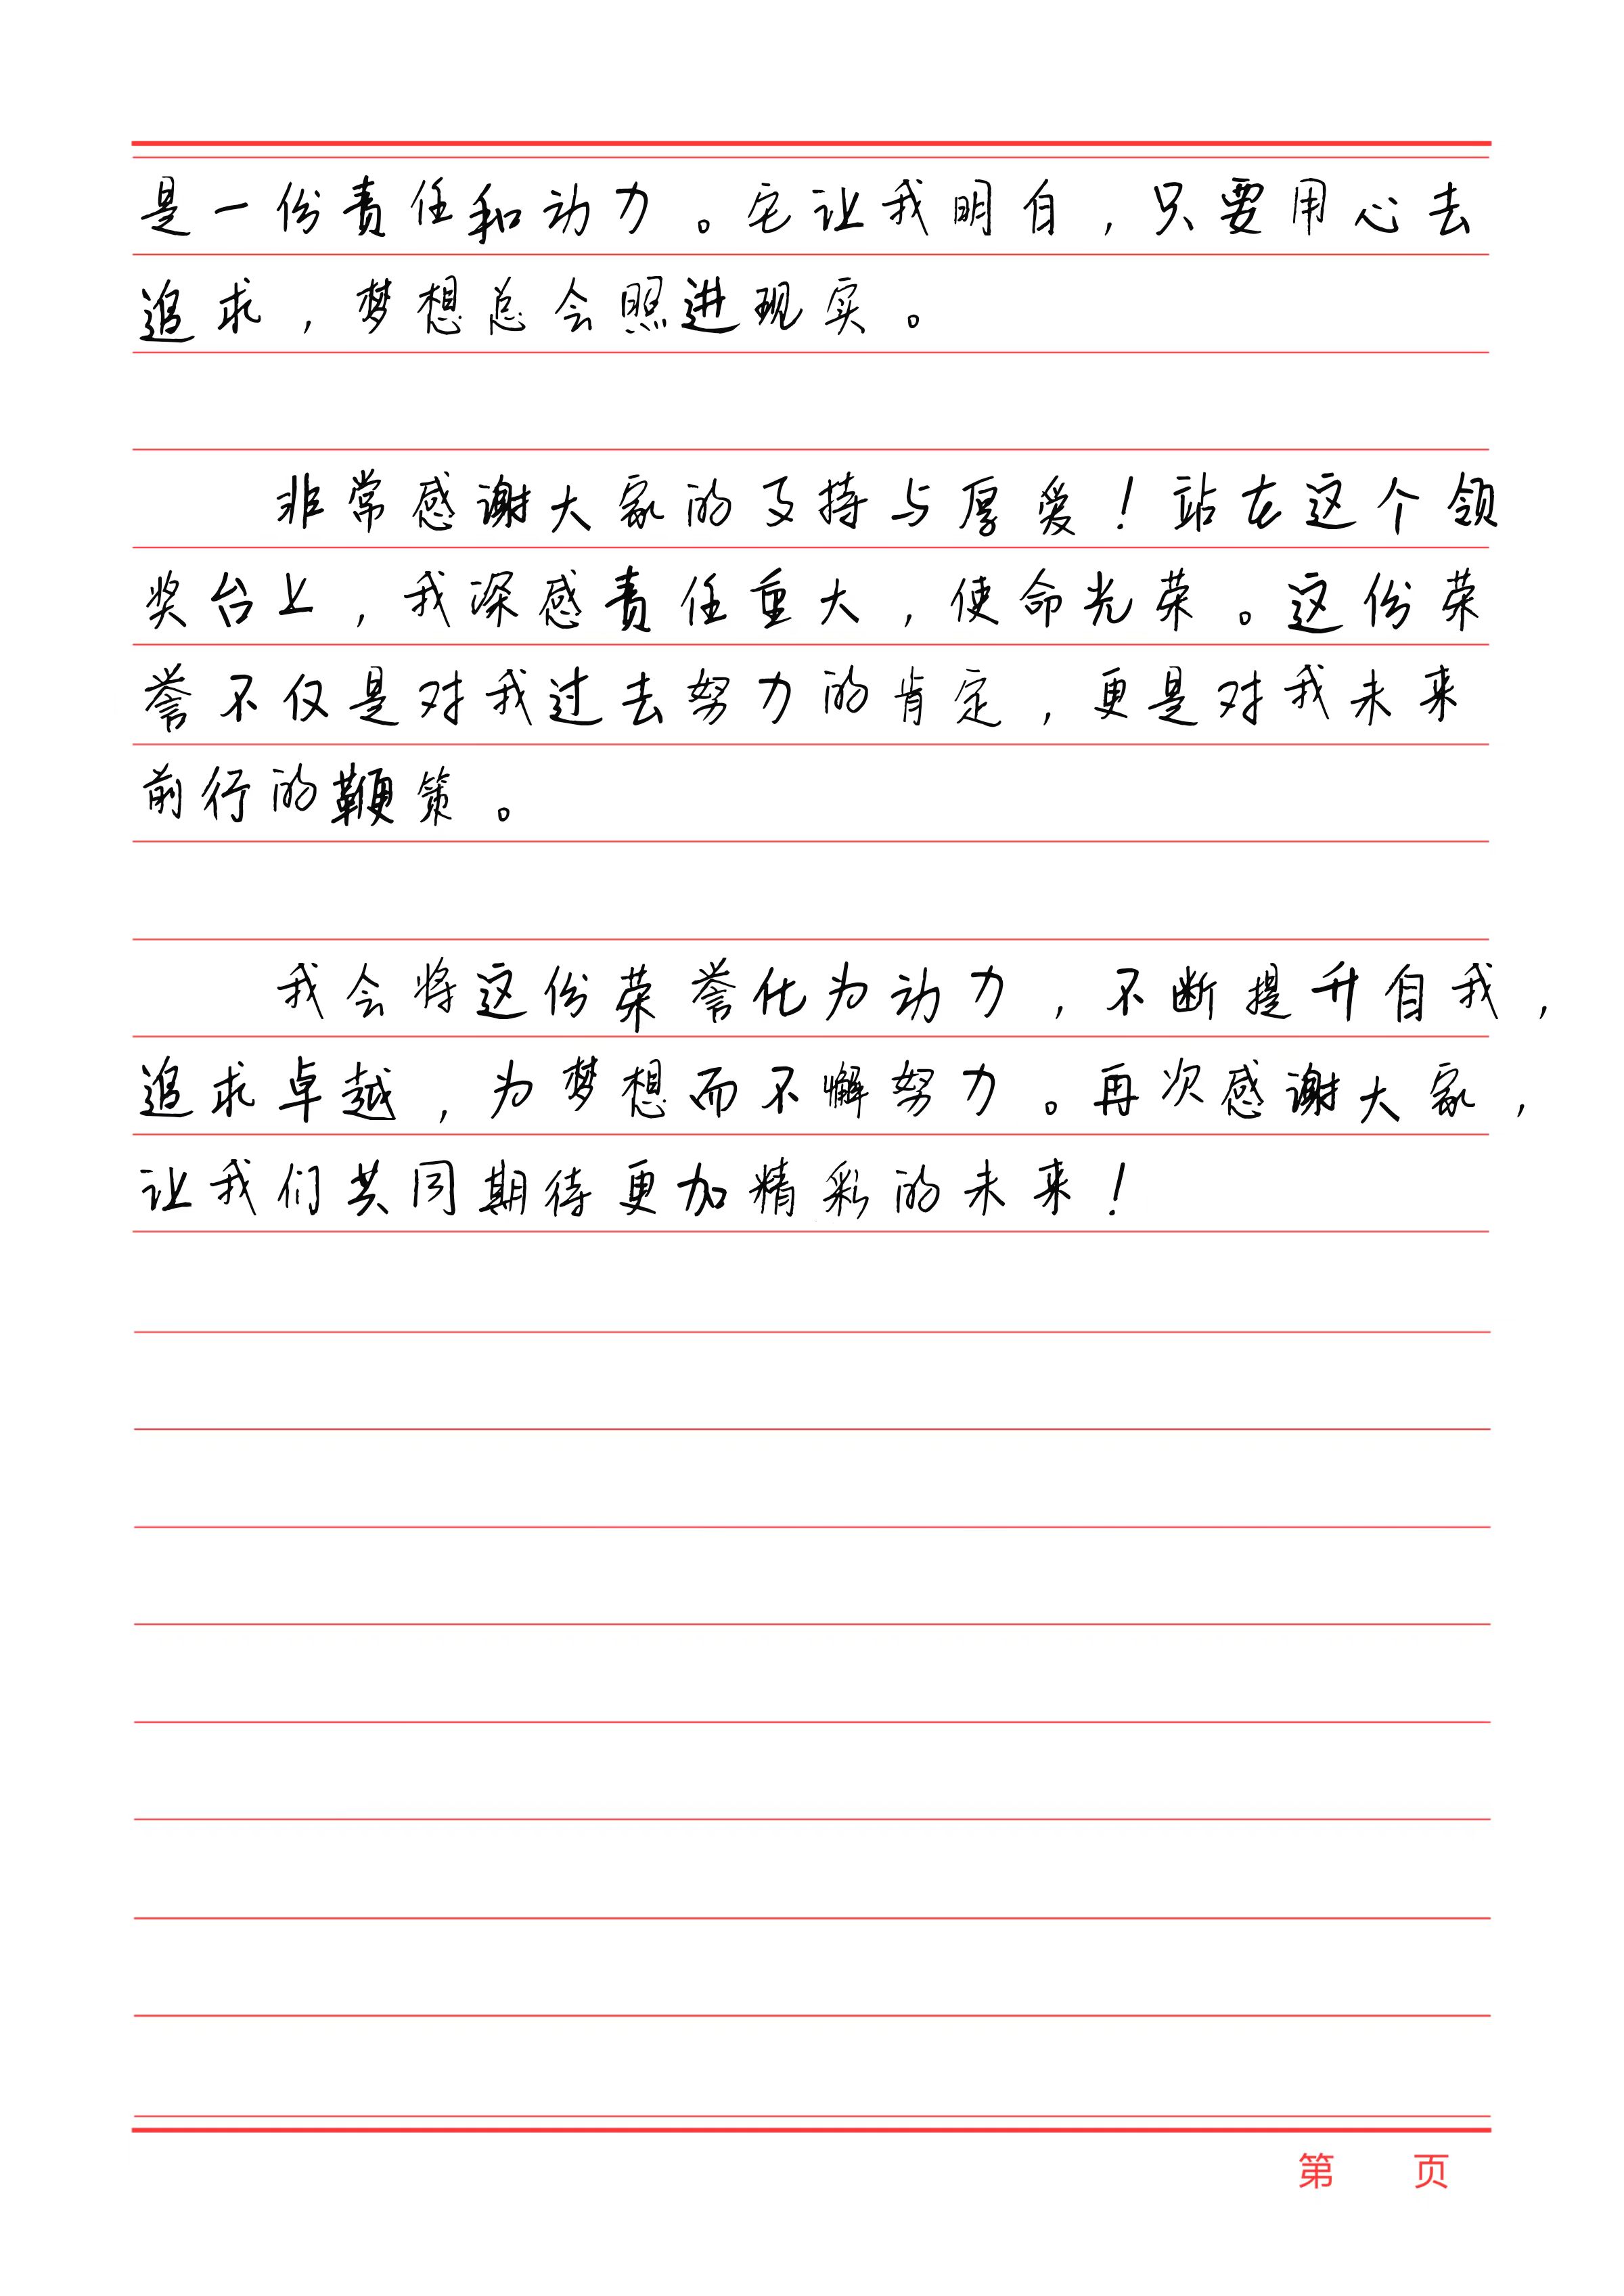 是一份责任和动力。它让我明白，只要用心去
追求，梦想总会照进现实。
非常感谢大家的支持与厚爱！站在这个领
奖台上，我深感责任重大，使命光荣。这份荣
誉不仅是对我过去努力的肯定，更是对我未来
前行的鞭策。
我会将这份荣誉化为动力，不断提升自我，
追求卓越，为梦想而不懈努力。再次感谢大家，
让我们共同期待更加精彩的未来！
第 页